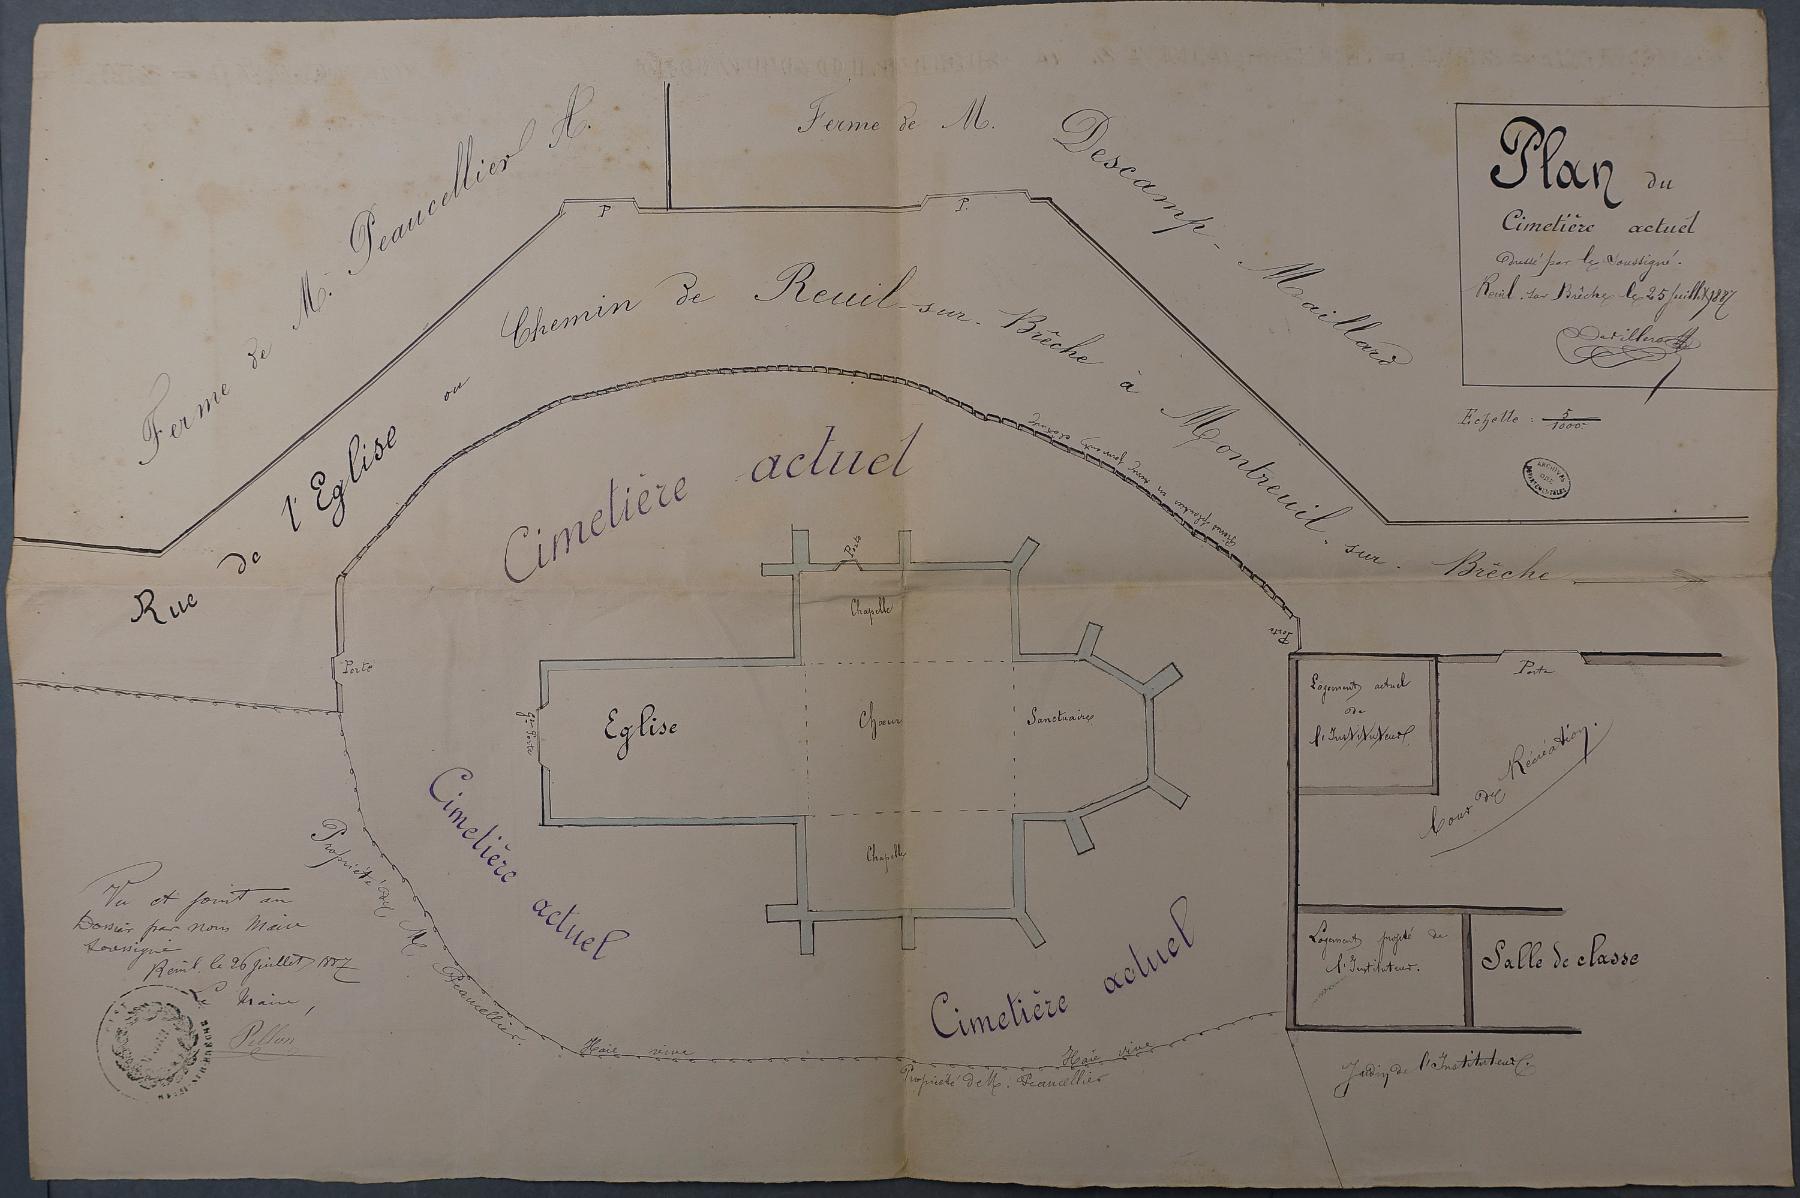 Plan du
Cimetière actuel
dressé par le soussigné.
Reuil-sur-Brêche le 25 juillet 1887
Echelle : 5/1000
ARCHIVES
DEPARTEMENTALES
OISE
Ferme de M. Peaucellier A.
Ferme de M. Descamp-Maillard
P
P.
Rue de l'Eglise ou Chemin de Reuil-sur-Brêche à Montreuil-sur-Brêche
Cimetière actuel
Porte
Porte
Porte
Chapelle
Eglise
Chœur
Sanctuaire
Gde Porte
Chapelle
Porte
Logement actuel
de
l'Instituteur
Cour de Récréation
Cimetière actuel
Cimetière actuel
Logement projeté de
l'Instituteur.
Salle de classe
Jardin de l'Instituteur
Propriété de M. Peaucellier
Haie vive
Haie vive
Propriété de M. Peaucellier
Vu et joint au
Dossier par nous Maire
soussigné
Reuil, le 26 juillet 1887
Le Maire,